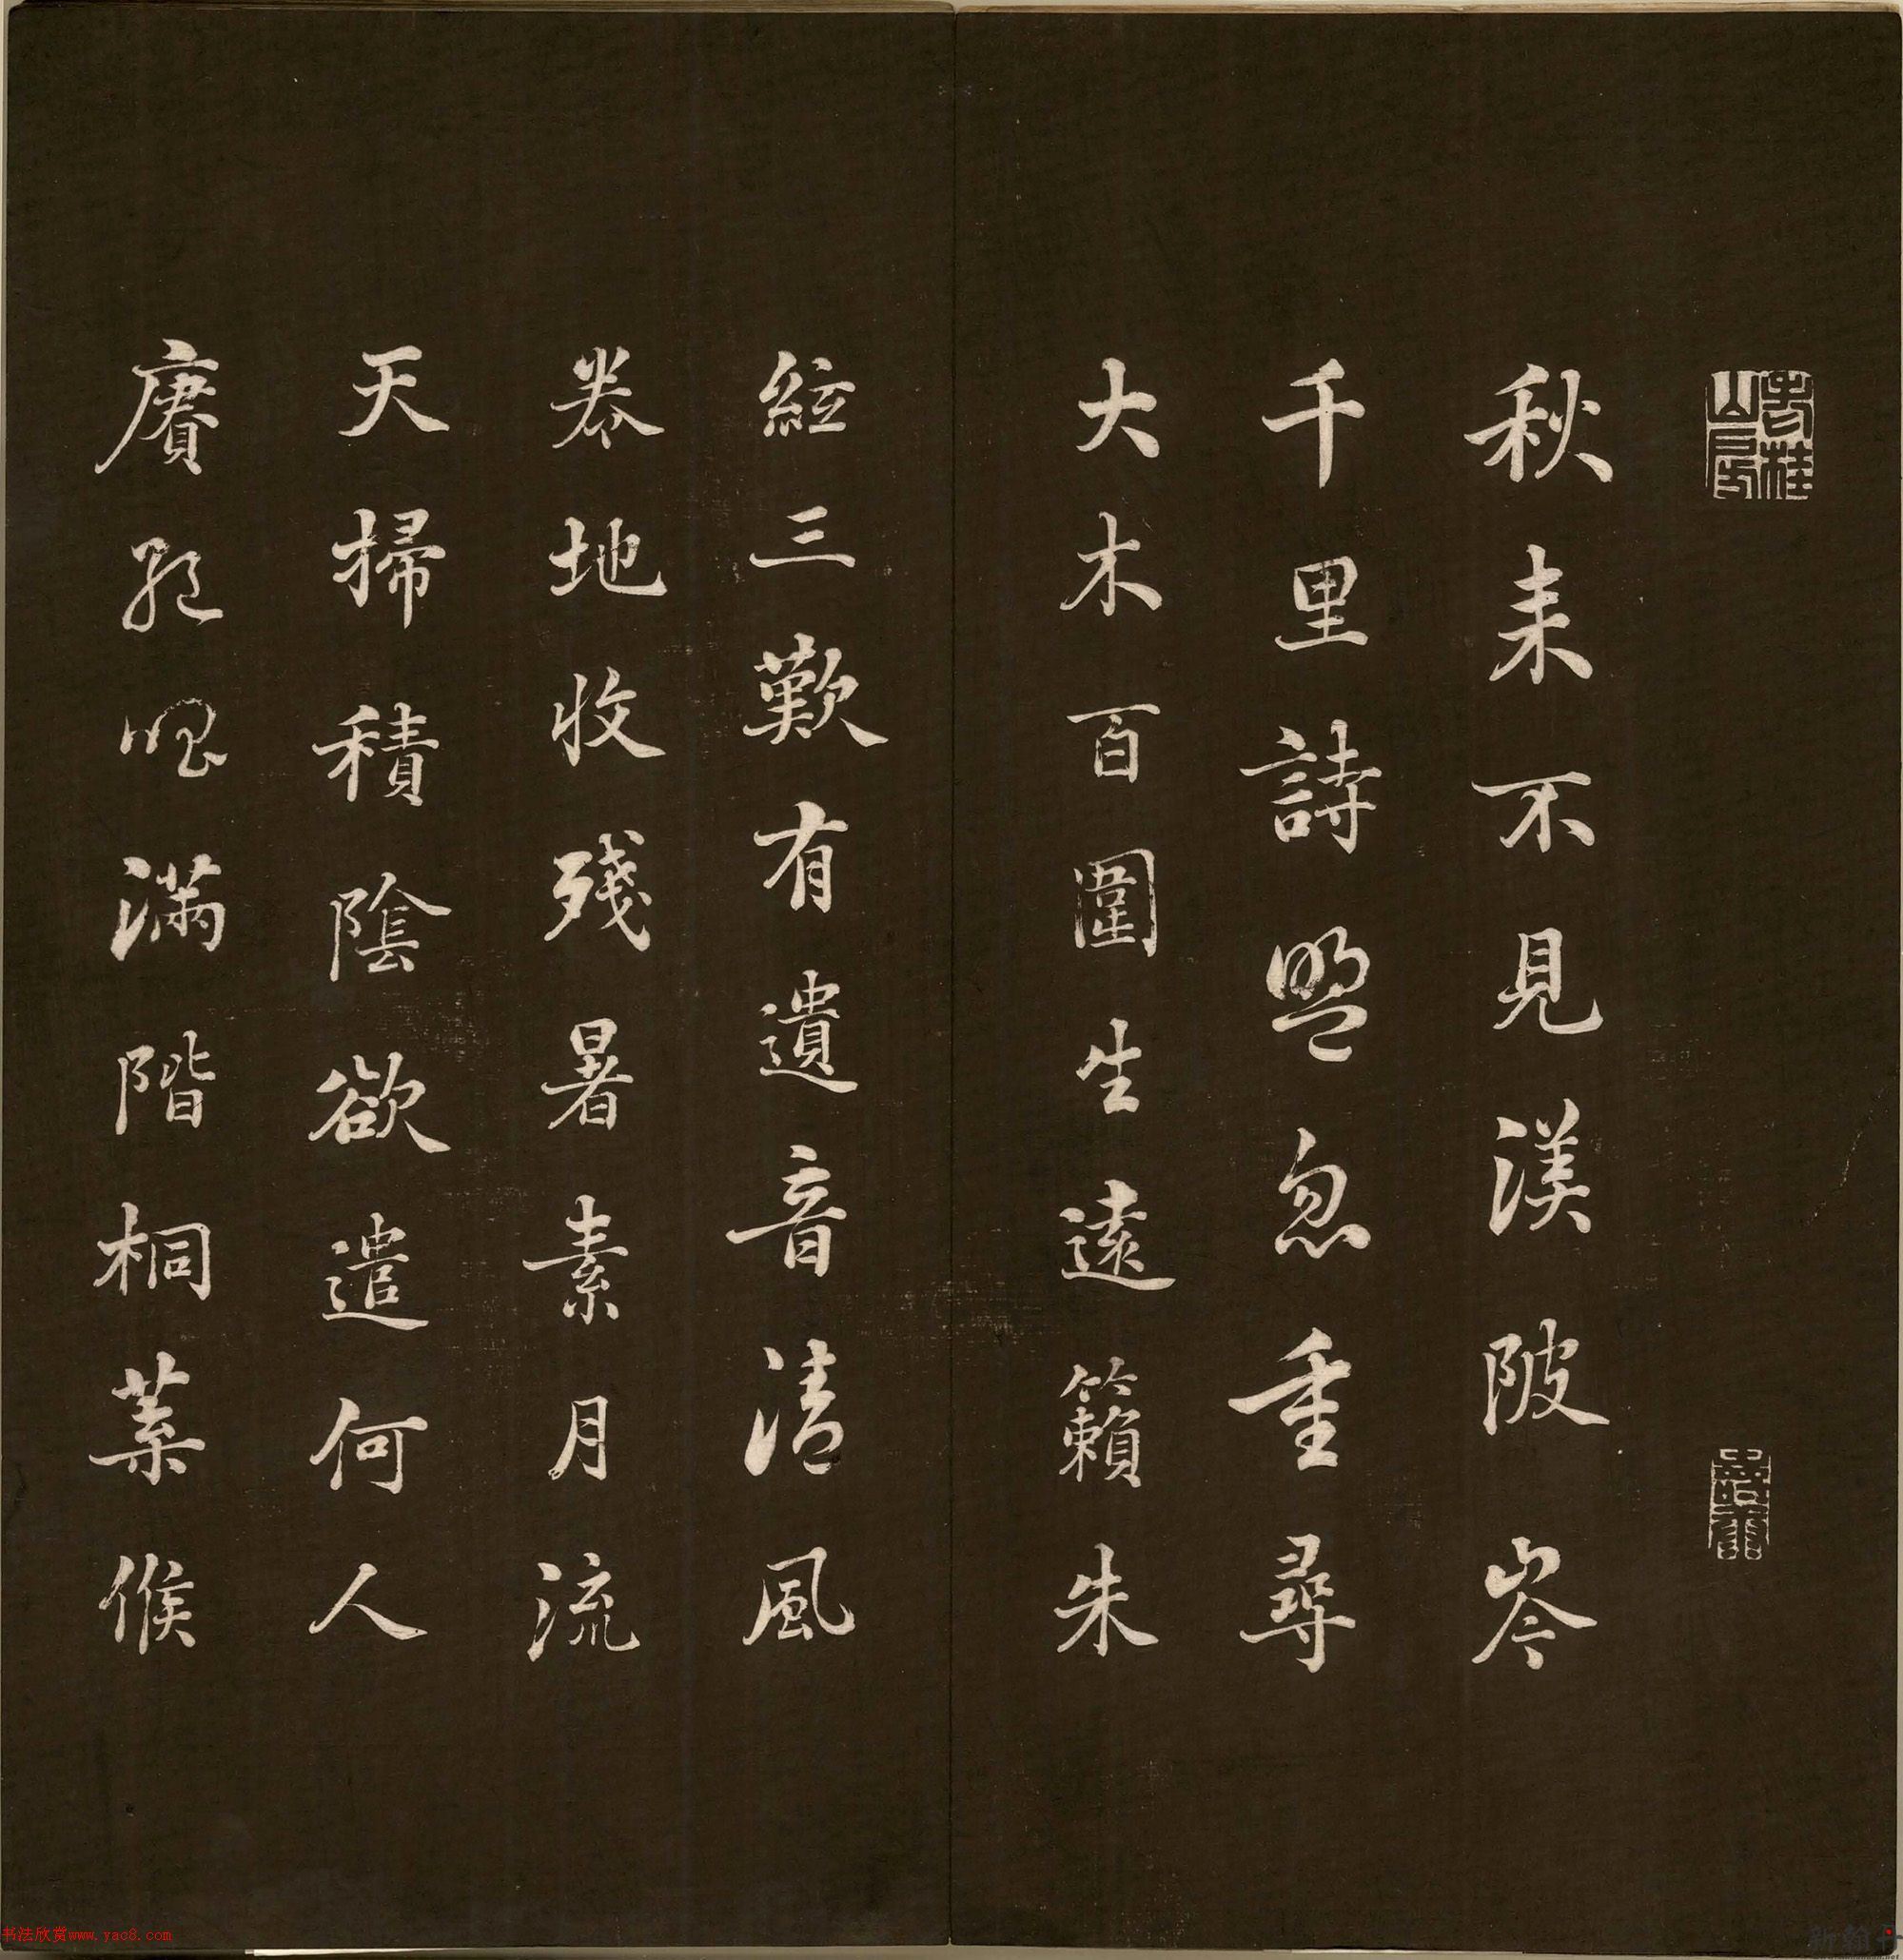 秋来不見渼陂岑
千里詩盟忽重尋
大木百圍生遠籟朱
絃三歎有遺音清風
卷地收殘暑素月流
天掃積陰欲遣何人
賡絕唱滿階桐葉候
书法欣赏www.yac8.com